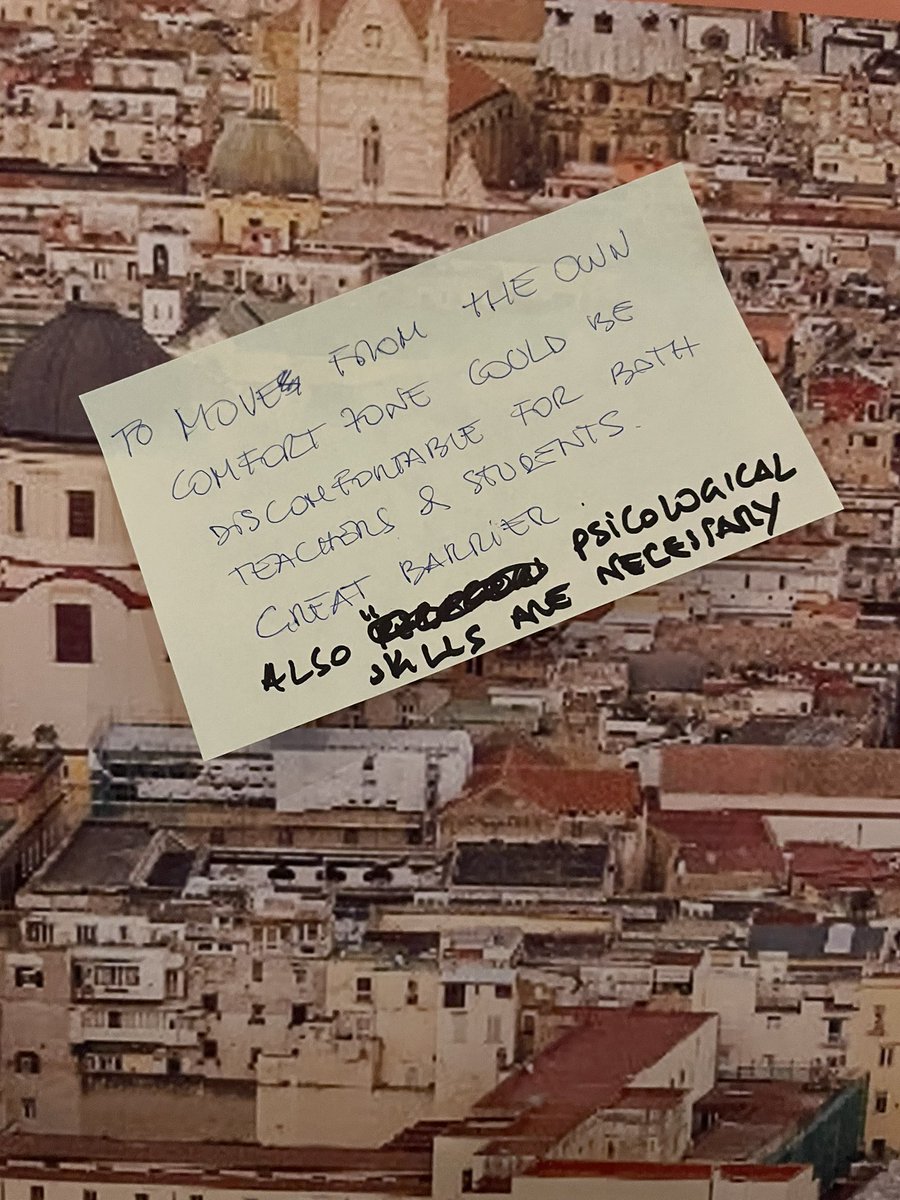 TO MOVE FROM THE OWN
COMFORT ZONE COULD BE
DISCOMFORTABLE FOR BOTH
TEACHERS & STUDENTS.
GREAT BARRIER.
ALSO PSICOLOGICAL
SKILLS ARE NECESSARY